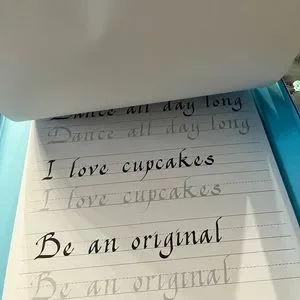 Dance all day long
Dance all day long
I love cupcakes
I love cupcakes
Be an original
Be an original